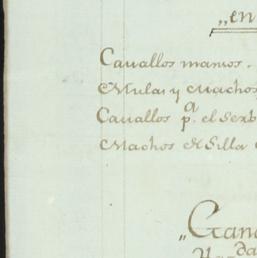 „en
Cavallos mansos.
Mulas y Machos
Cavallos pª. el Serb
Machos de Silla
„Gana
da